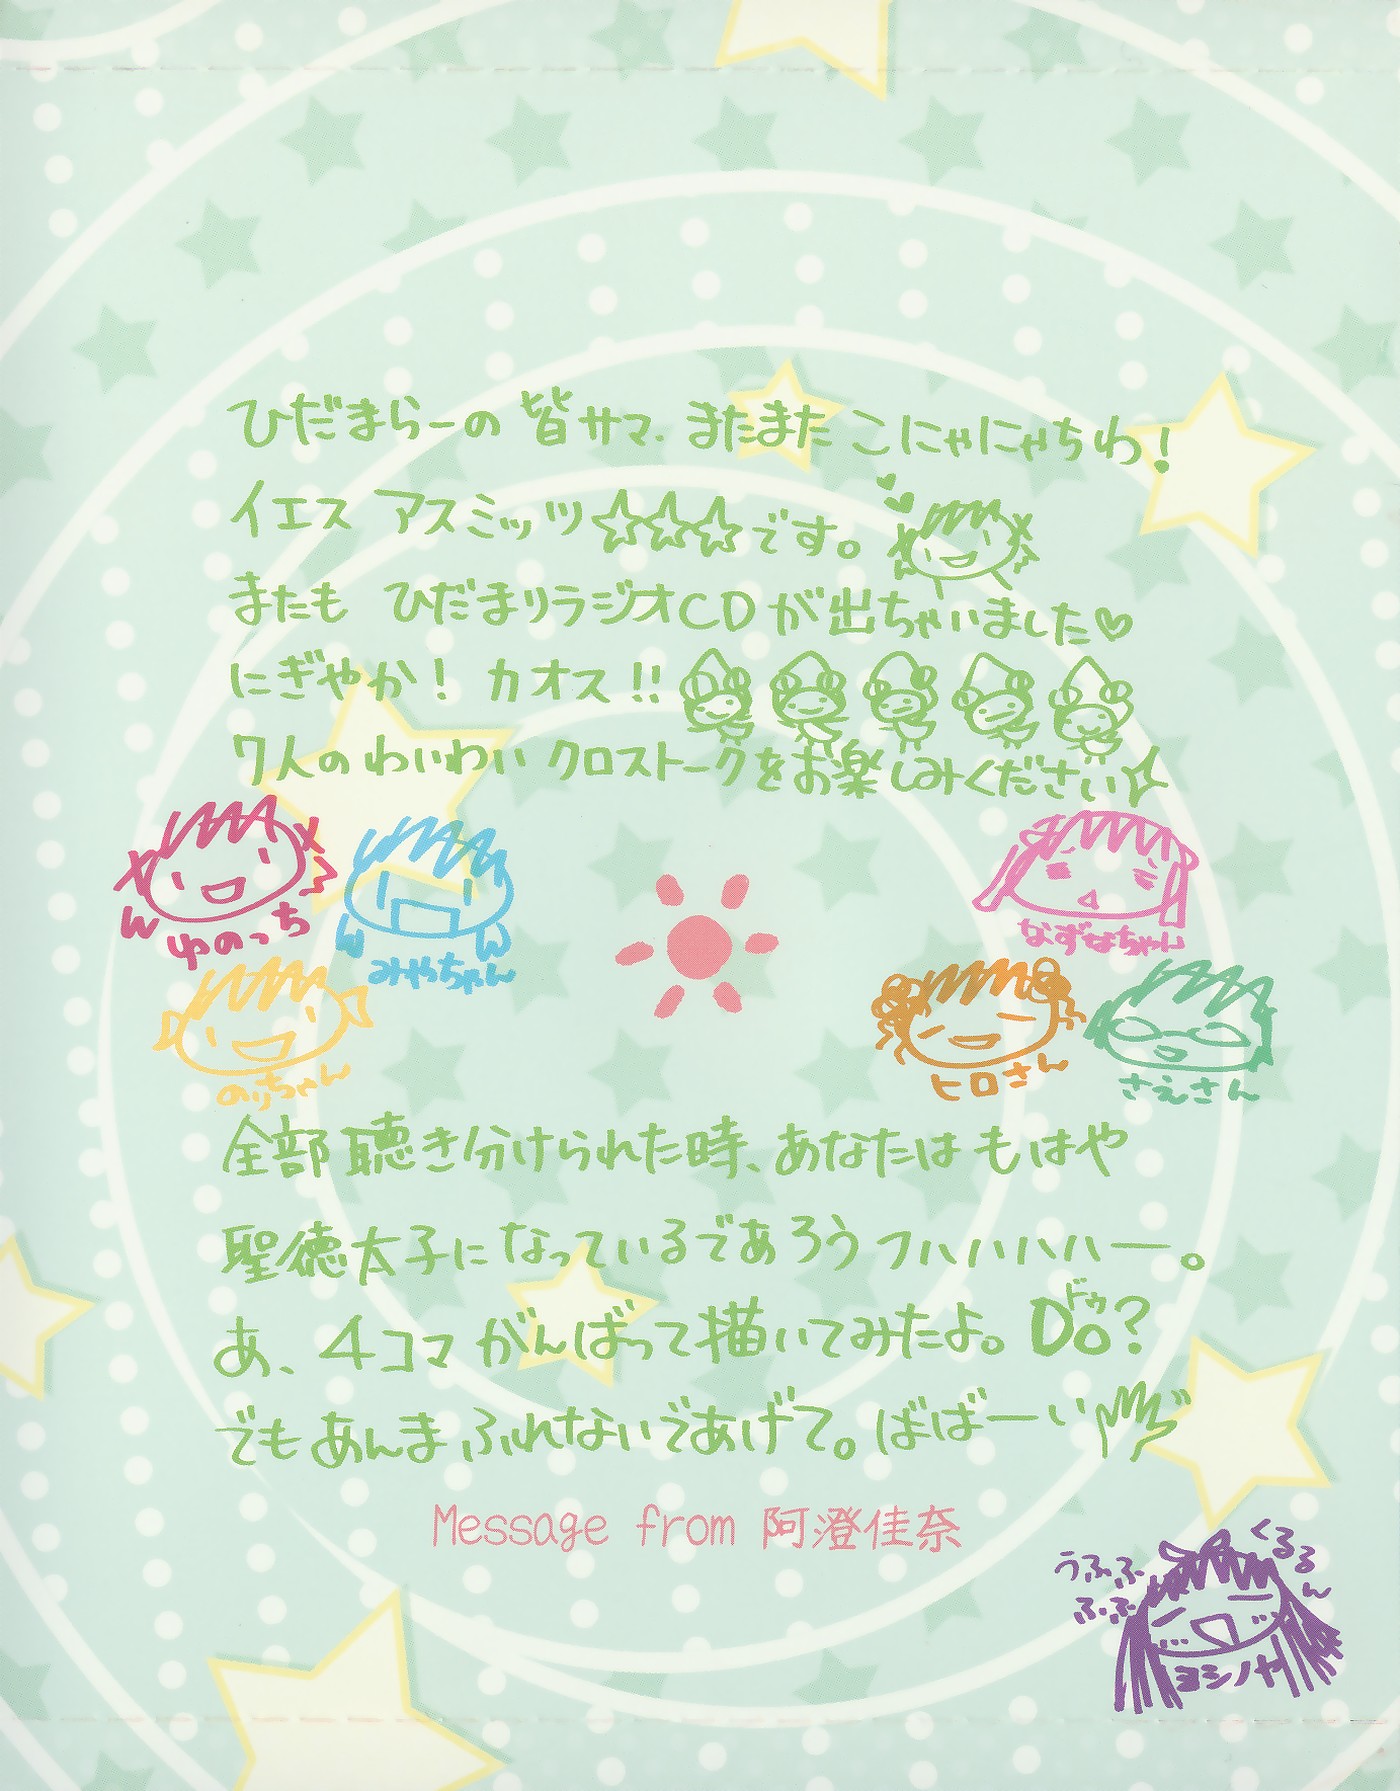 ひだまらーの 皆サマ. またまた こにゃにゃちわ!
イエス アスミッツ☆☆☆です。
またも ひだまりラジオCDが出ちゃいました♡
にぎやか! カオス!!
7人の わいわい クロストークをお楽しみください
ゆのっち
みやちゃん
のりちゃん
なずなちゃん
ヒロさん
さえさん
全部 聴き分けられた時、あなたは もはや
聖徳太子に なっているであろう フハハハハー。
あ、4コマ がんばって描いてみたよ。Do?
ドゥ
でも あんま ふれないであげて。ばばーい
Message from 阿澄佳奈
うふふふふ
くるるん
ヨシノヤ